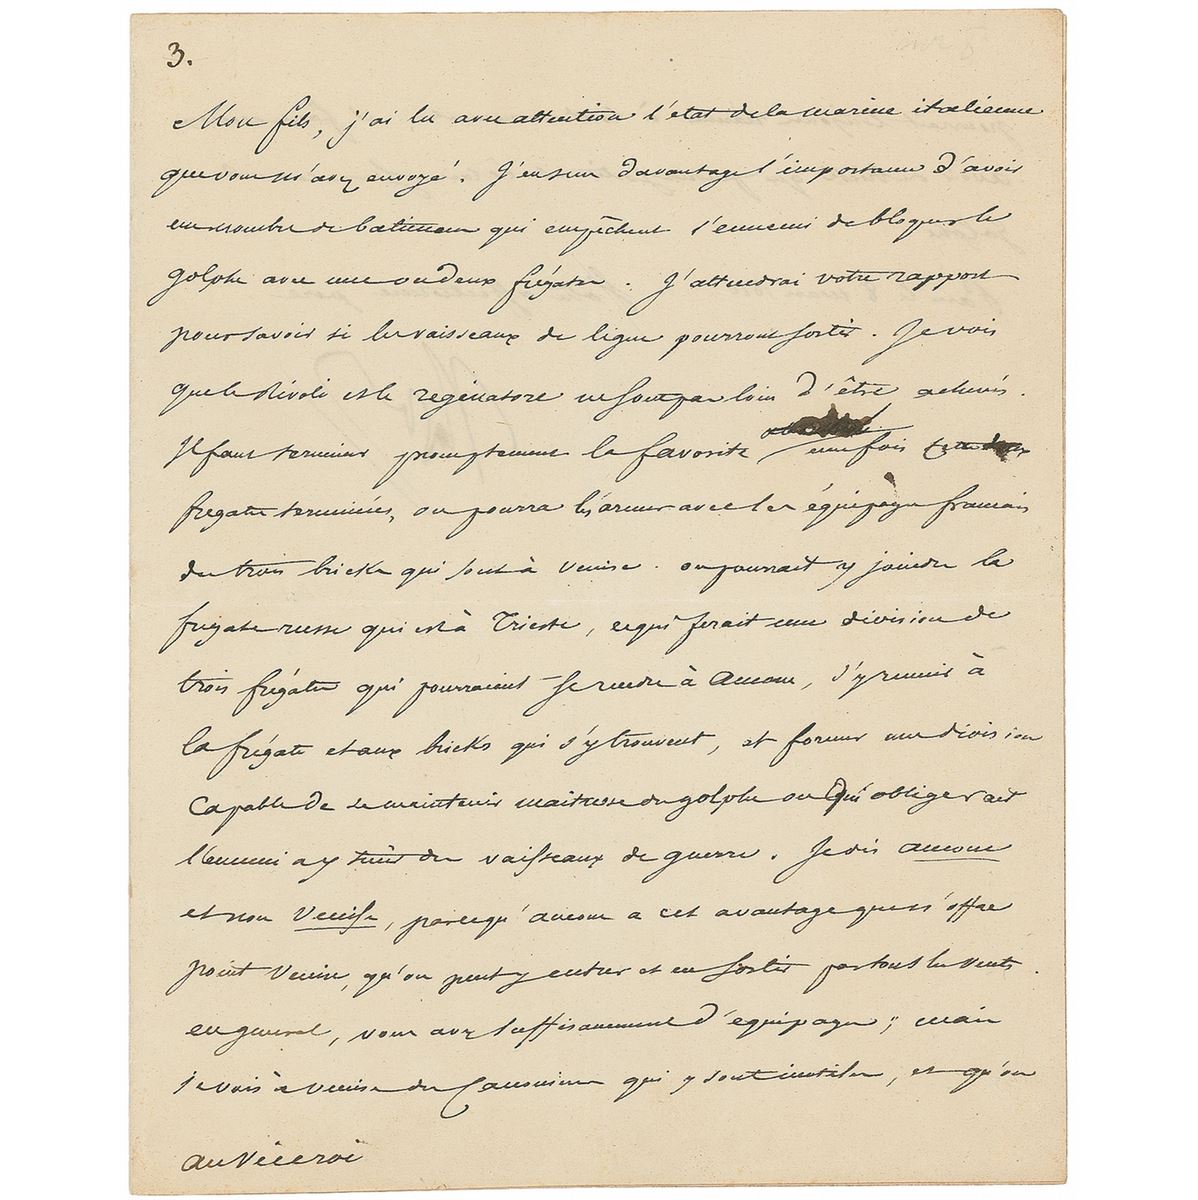 3.
Mon fils, j'ai lu avec attention l'état de la marine italienne
que vous m'avez envoyé. J'en sens davantage l'importance d'avoir
un nombre de batimens qui empêchent l'ennemi de bloquer le
golphe avec une ou deux frégates. J'attendrai votre rapport
pour savoir si les vaisseaux de ligne pourront sortir. Je vois
que le Rivoli et le regénatore ne sont pas loin d'être achevés.
Il faut terminer promptement la favorite une fois ces deux
frégates terminées, on pourra les armer avec les équipages français
des trois bricks qui sont à Venise. on pourrait y joindre la
frégate russe qui est à Trieste, ce qui ferait une division de
trois frégates qui pourraient se rendre à Ancone, s'y reunir à
la frégate et aux bricks qui s'y trouvent, et former une division
capable de se maintenir maitresse du golphe ou qui obligerait
l'ennemi a y tenir des vaisseaux de guerre. Je dis ancone
et non Venise, parcequ'ancone a cet avantage que n'offre
point Venise, qu'on peut y entrer et en sortir par tous les vents.
en general, vous avez suffisamment d'équipages; mais
je vois à venise des Canonieres qui y sont inutiles, et qu'on
au Viceroi